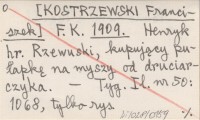 [KOSTRZEWSKI Franci-
szek] F.K. 1909. Henryk
hr. Rzewuski, kupujący pu-
łapkę na myszy od druciar-
czyka. — Tyg. Il. nr 50:
1068, tylko rys.
%